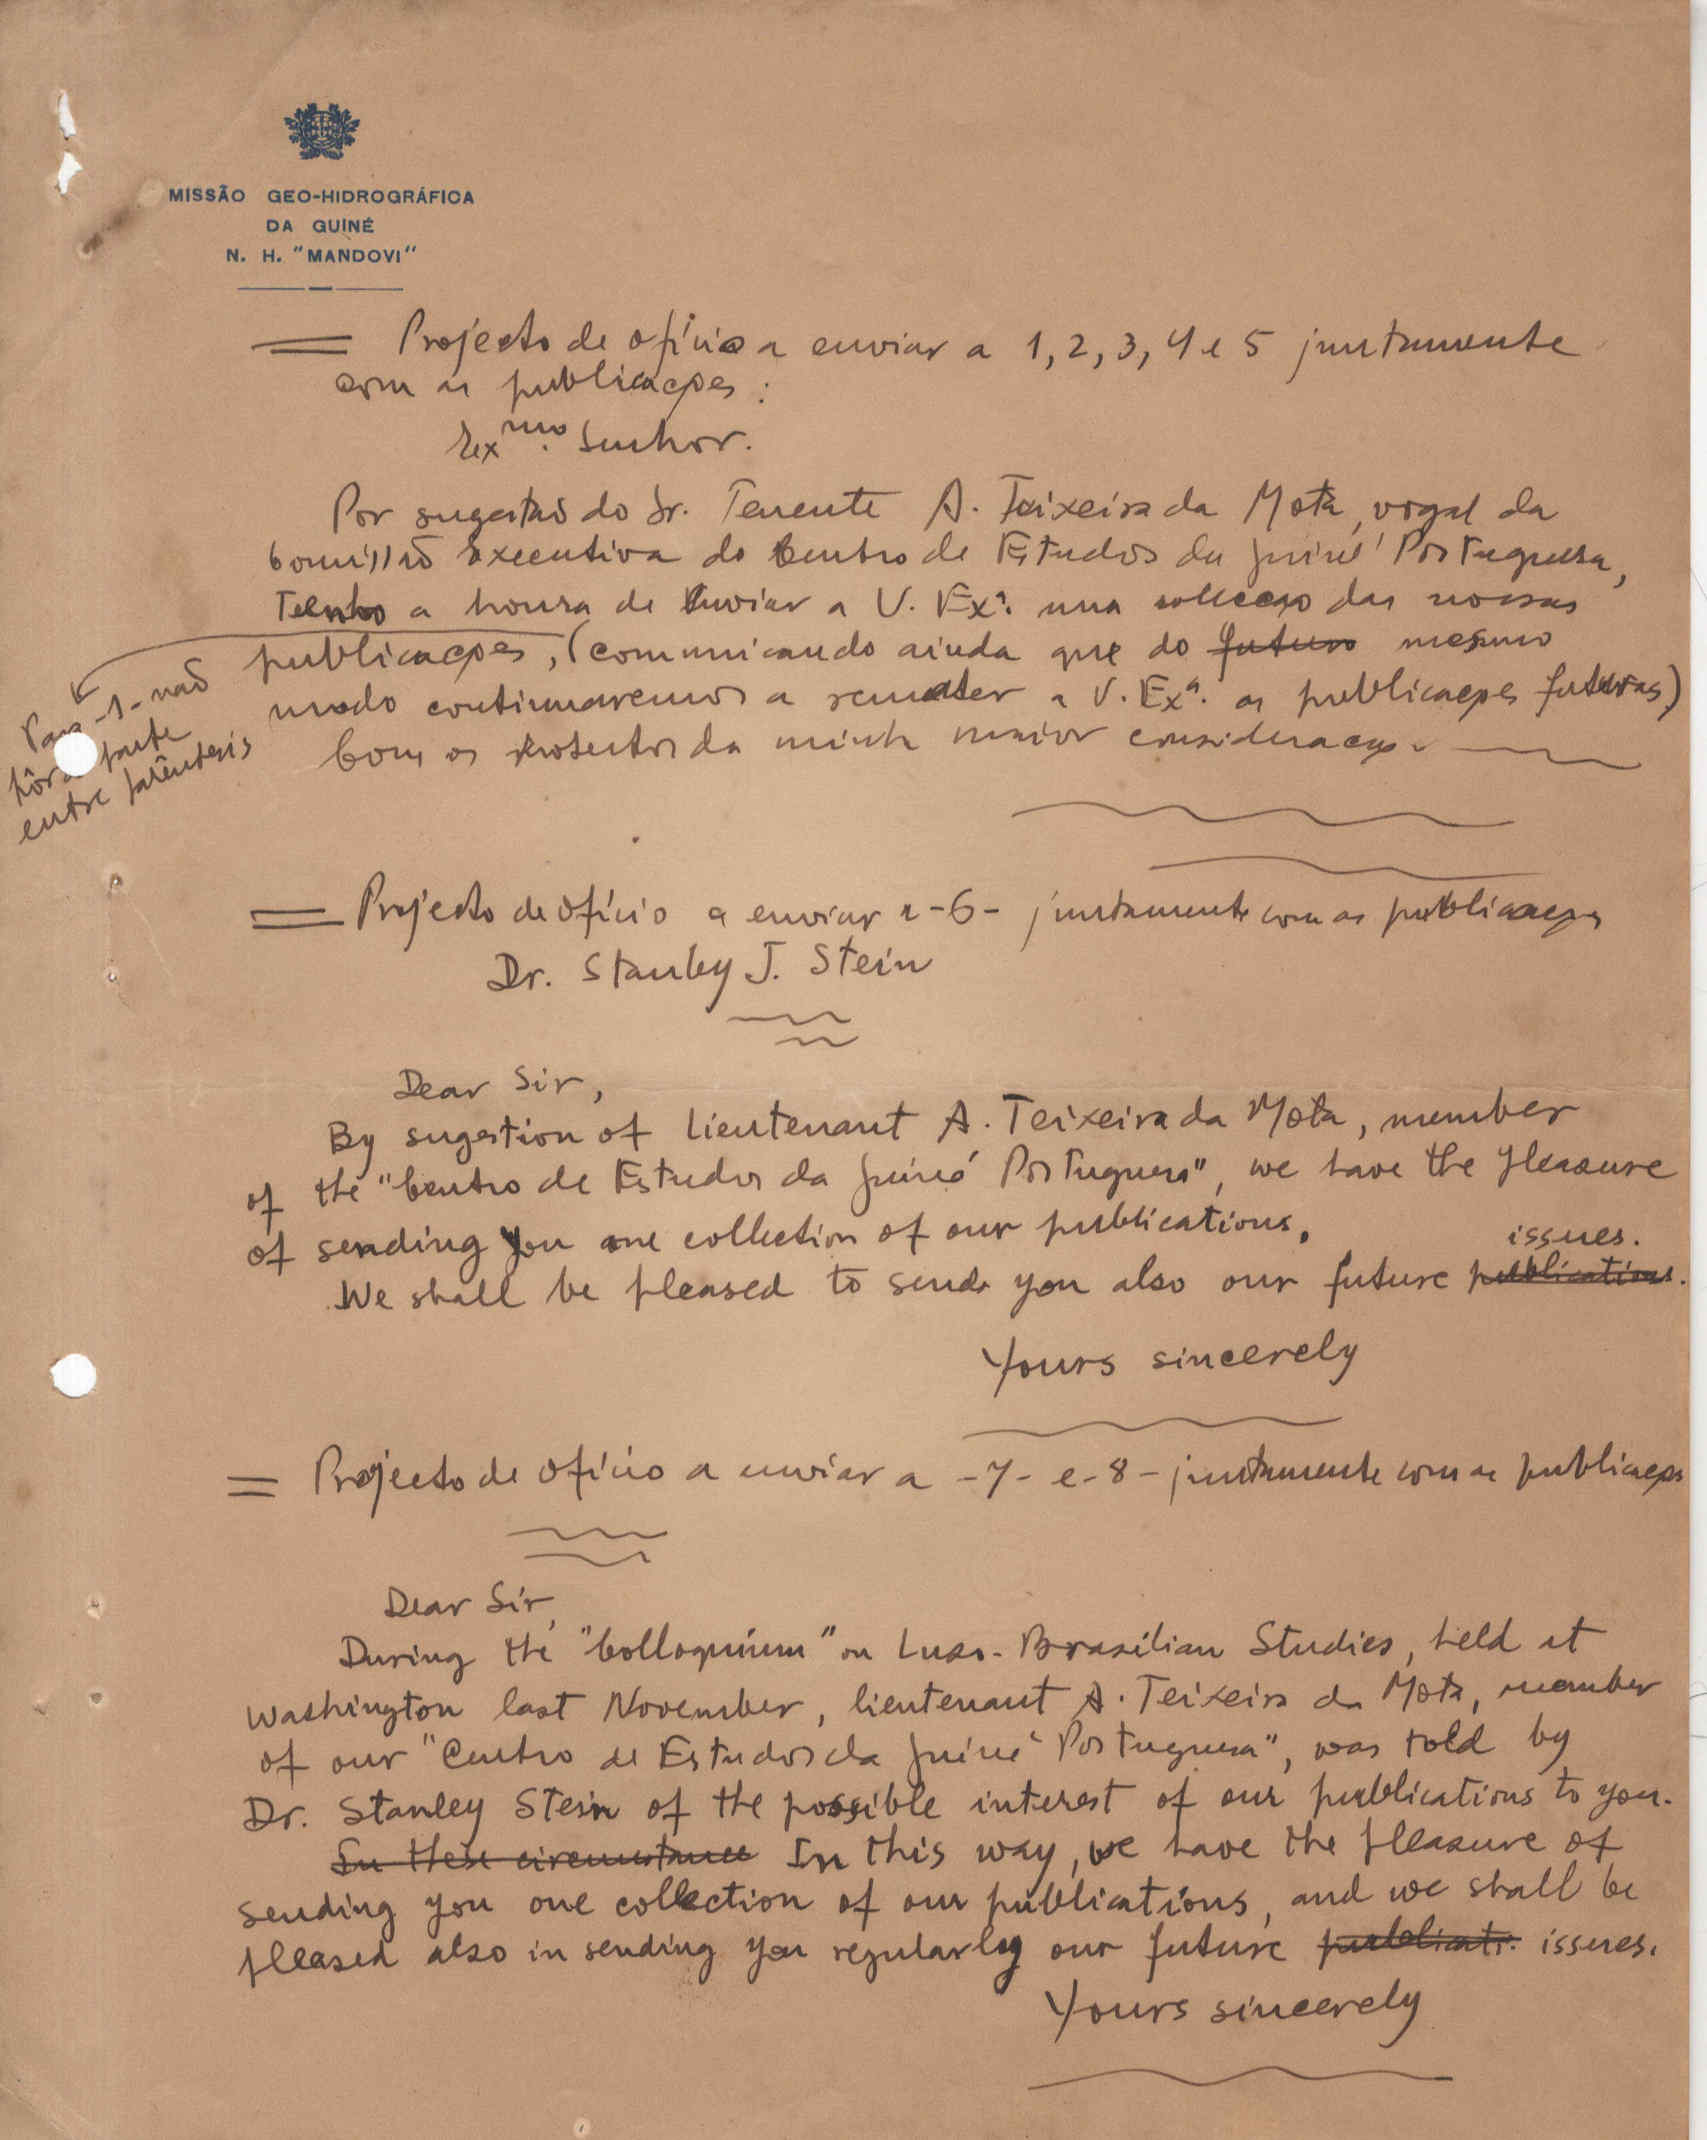 MISSÃO GEO-HIDROGRÁFICA
DA GUINÉ
N. H. "MANDOVI"
Projecto de ofício a enviar a 1, 2, 3, 4 e 5 juntamente
com as publicações:
Exmo. Senhor.
Por sugestão do Sr. Tenente A. Teixeira da Mota, vogal da
Comissão Executiva do Centro de Estudos da Guiné Portuguesa,
Tenho a honra de enviar a V. Exª. uma colecção das nossas
publicações, (comunicando ainda que do futuro mesmo
modo continuaremos a remeter a V. Exª. as publicações futuras)
Com os protestos da minha maior consideração.
Para -1- não
pôr a parte
entre parêntesis
Projecto de ofício a enviar a -6- juntamente com as publicações
Dr. Stanley J. Stein
Dear Sir,
By sugestion of lieutenant A. Teixeira da Mota, member
of the "Centro de Estudos da Guiné Portuguesa", we have the pleasure
of sending you one collection of our publications.
issues.
We shall be pleased to send you also our future publications.
Yours sincerely
Projecto de ofício a enviar a -7- e -8- juntamente com as publicações
Dear Sir,
During the "Colloquium" on Luso-Brasilian Studies, held at
Washington last November, lieutenant A. Teixeira da Mota, member
of our "Centro de Estudos da Guiné Portuguesa", was told by
Dr. Stanley Stein of the possible interest of our publications to you.
In these circumstance In this way, we have the pleasure of
sending you one collection of our publications, and we shall be
pleased also in sending you regularly our future publicati. issues.
Yours sincerely